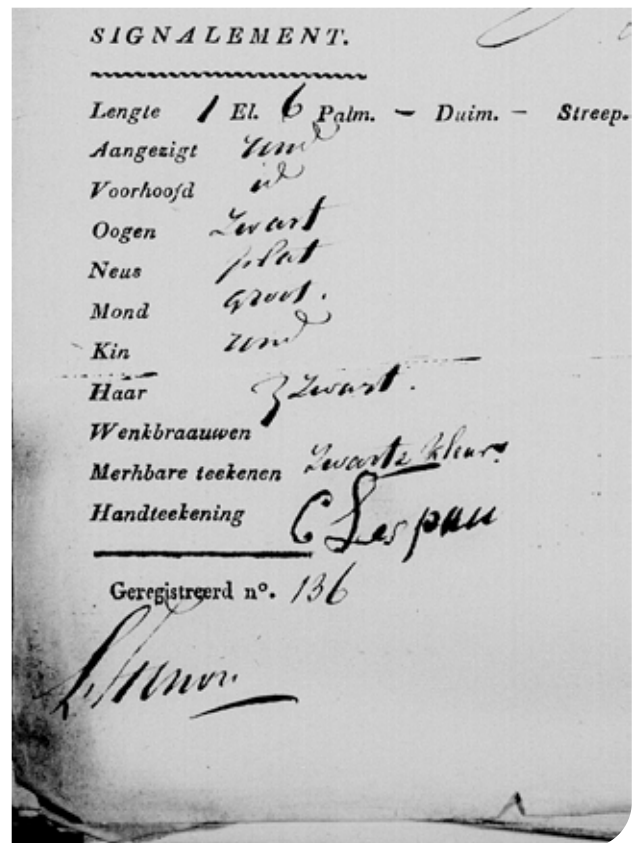 SIGNALEMENT.
Lengte 1 El. 6 Palm. — Duim. — Streep.
Aangezigt rond
Voorhoofd id
Oogen zwart
Neus plat
Mond groot.
Kin rond
Haar zwart.
Wenkbraauwen
Merhbare teekenen zwarte kleur.
Handteekening C Lespau
Geregistreerd nº. 136